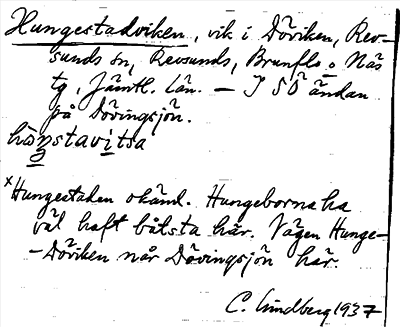 Hungestadviken, vik i Döviken, Rev-
sunds sn, Revsunds, Brunflo o Näs
tg, Jämtl. län. — I SÖ ändan
på Dövingsjön.
hω̣nstavitsa
ˣHungestaden okänd. Hungeborna ha
väl haft båtsta här. Vägen Hunge-
-Döviken når Dövingsjön här.
C. Lindberg 1937